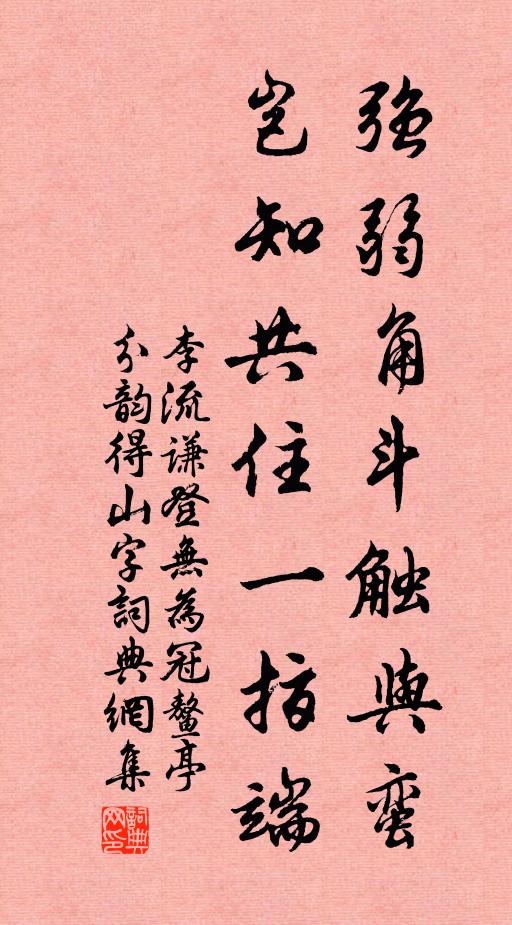 强弱角斗触與蛮
岂知共住一指端
李流谦登無為冠鳌亭
分韵得山字詞典網集
詞典网印